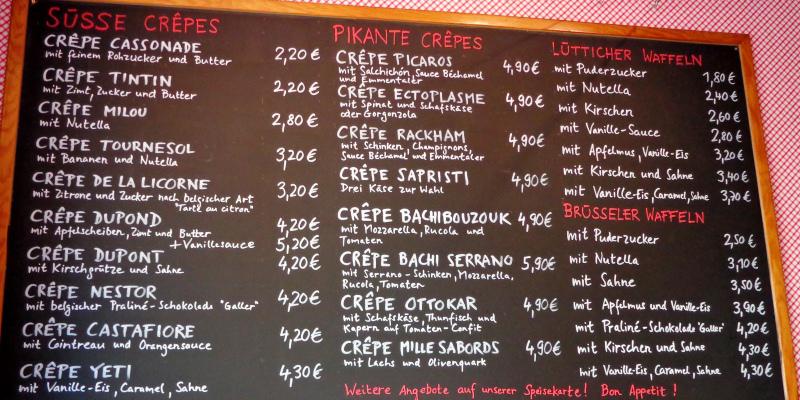 SÜSSE CRÊPES
CRÊPE CASSONADE 2,20 €
mit feinem Rohzucker und Butter
CRÊPE TINTIN 2,20 €
mit Zimt, Zucker und Butter
CRÊPE MILOU 2,80 €
mit Nutella
CRÊPE TOURNESOL 3,20 €
mit Bananen und Nutella
CRÊPE DE LA LICORNE 3,20 €
mit Zitrone und Zucker nach belgischer Art
"Tarte au citron"
CRÊPE DUPOND 4,20 €
mit Apfelscheiben, Zimt und Butter
+ Vanillesauce 5,20 €
CRÊPE DUPONT 4,20 €
mit Kirschgrütze und Sahne
CRÊPE NESTOR 4,20 €
mit belgischer Praliné-Schokolade "Galler"
CRÊPE CASTAFIORE 4,20 €
mit Cointreau und Orangensauce
CRÊPE YETI 4,30 €
mit Vanille-Eis, Caramel, Sahne
PIKANTE CRÊPES
CRÊPE PICAROS 4,90 €
mit Salchichón, Sauce Béchamel
und Emmentaler
CRÊPE ECTOPLASME 4,90 €
mit Spinat und Schafskäse
oder Gorgonzola
CRÊPE RACKHAM 4,90 €
mit Schinken, Champignons,
Sauce Béchamel und Emmentaler
CRÊPE SAPRISTI 4,90 €
Drei Käse zur Wahl
CRÊPE BACHIBOUZOUK 4,90 €
mit Mozzarella, Rucola und
Tomaten
CRÊPE BACHI SERRANO 5,90 €
mit Serrano-Schinken, Mozzarella,
Rucola, Tomaten
CRÊPE OTTOKAR 4,90 €
mit Schafskäse, Thunfisch und
Kapern auf Tomaten-Confit
CRÊPE MILLE SABORDS 4,90 €
mit Lachs und Olivenquark
LÜTTICHER WAFFELN
mit Puderzucker 1,80 €
mit Nutella 2,40 €
mit Kirschen 2,60 €
mit Vanille-Sauce 2,80 €
mit Apfelmus, Vanille-Eis 3,20 €
mit Kirschen und Sahne 3,40 €
mit Vanille-Eis, Caramel, Sahne 3,70 €
BRÜSSELER WAFFELN
mit Puderzucker 2,50 €
mit Nutella 3,10 €
mit Sahne 3,50 €
mit Apfelmus und Vanille-Eis 3,90 €
mit Praliné-Schokolade "Galler" 4,20 €
mit Kirschen und Sahne 4,30 €
mit Vanille-Eis, Caramel, Sahne 4,30 €
Weitere Angebote auf unserer Speisekarte! Bon Appetit!